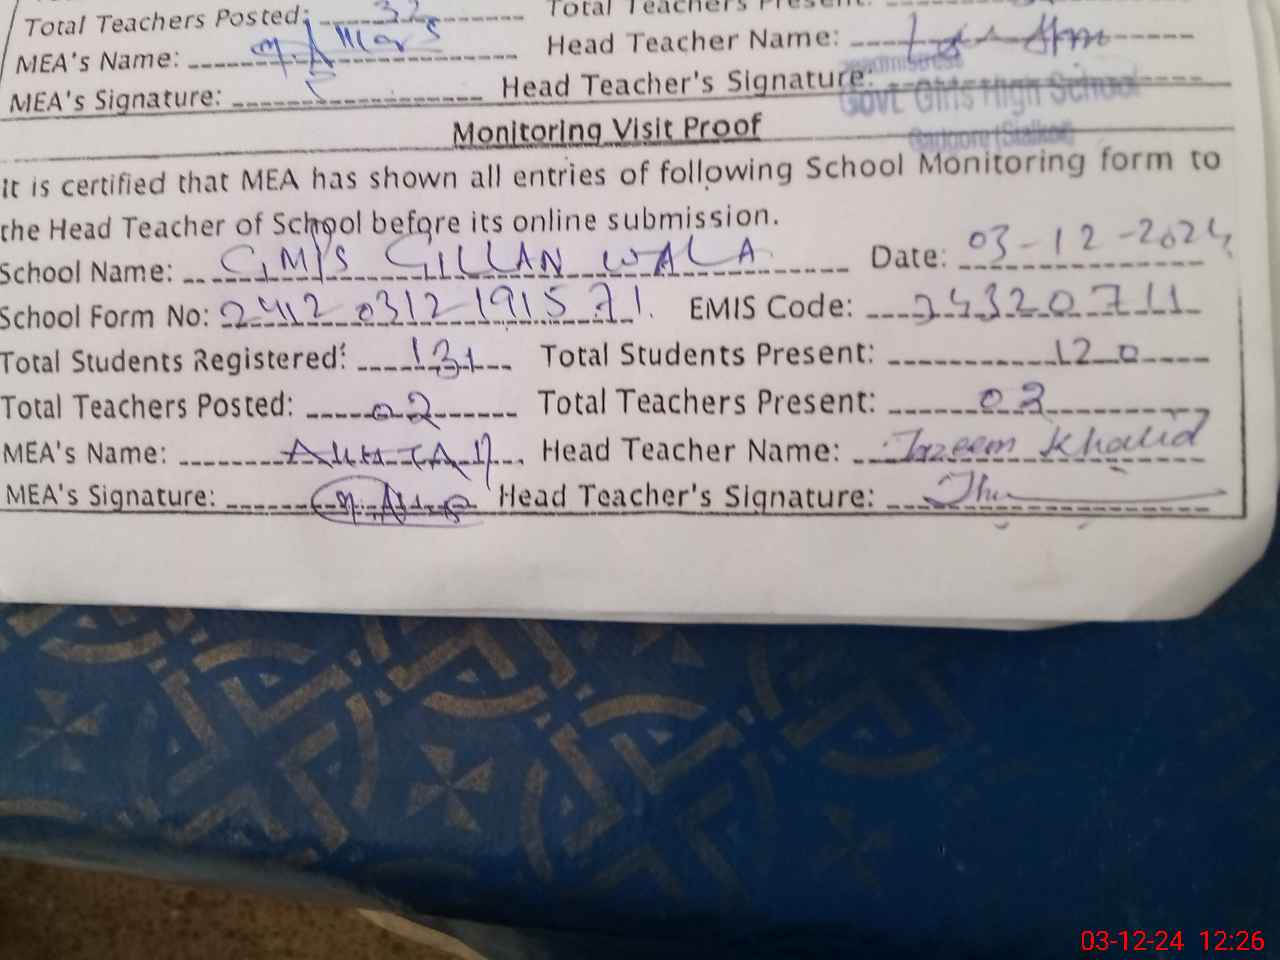 Total Teachers Posted: 32 Total Teachers Present:
MEA's Name: Head Teacher Name:
MEA's Signature: Head Teacher's Signature:
Headmistress
Govt. Girls High School
(Sialkot)
Monitoring Visit Proof
It is certified that MEA has shown all entries of following School Monitoring form to
the Head Teacher of School before its online submission.
School Name: GMPS GILLAN WALA Date: 03-12-2024
School Form No: 2412 0312 191571. EMIS Code: 34320711
Total Students Registered: 131 Total Students Present: 120
Total Teachers Posted: 02 Total Teachers Present: 02
MEA's Name: Head Teacher Name: Tazeem Khalid
MEA's Signature: Head Teacher's Signature:
03-12-24 12:26